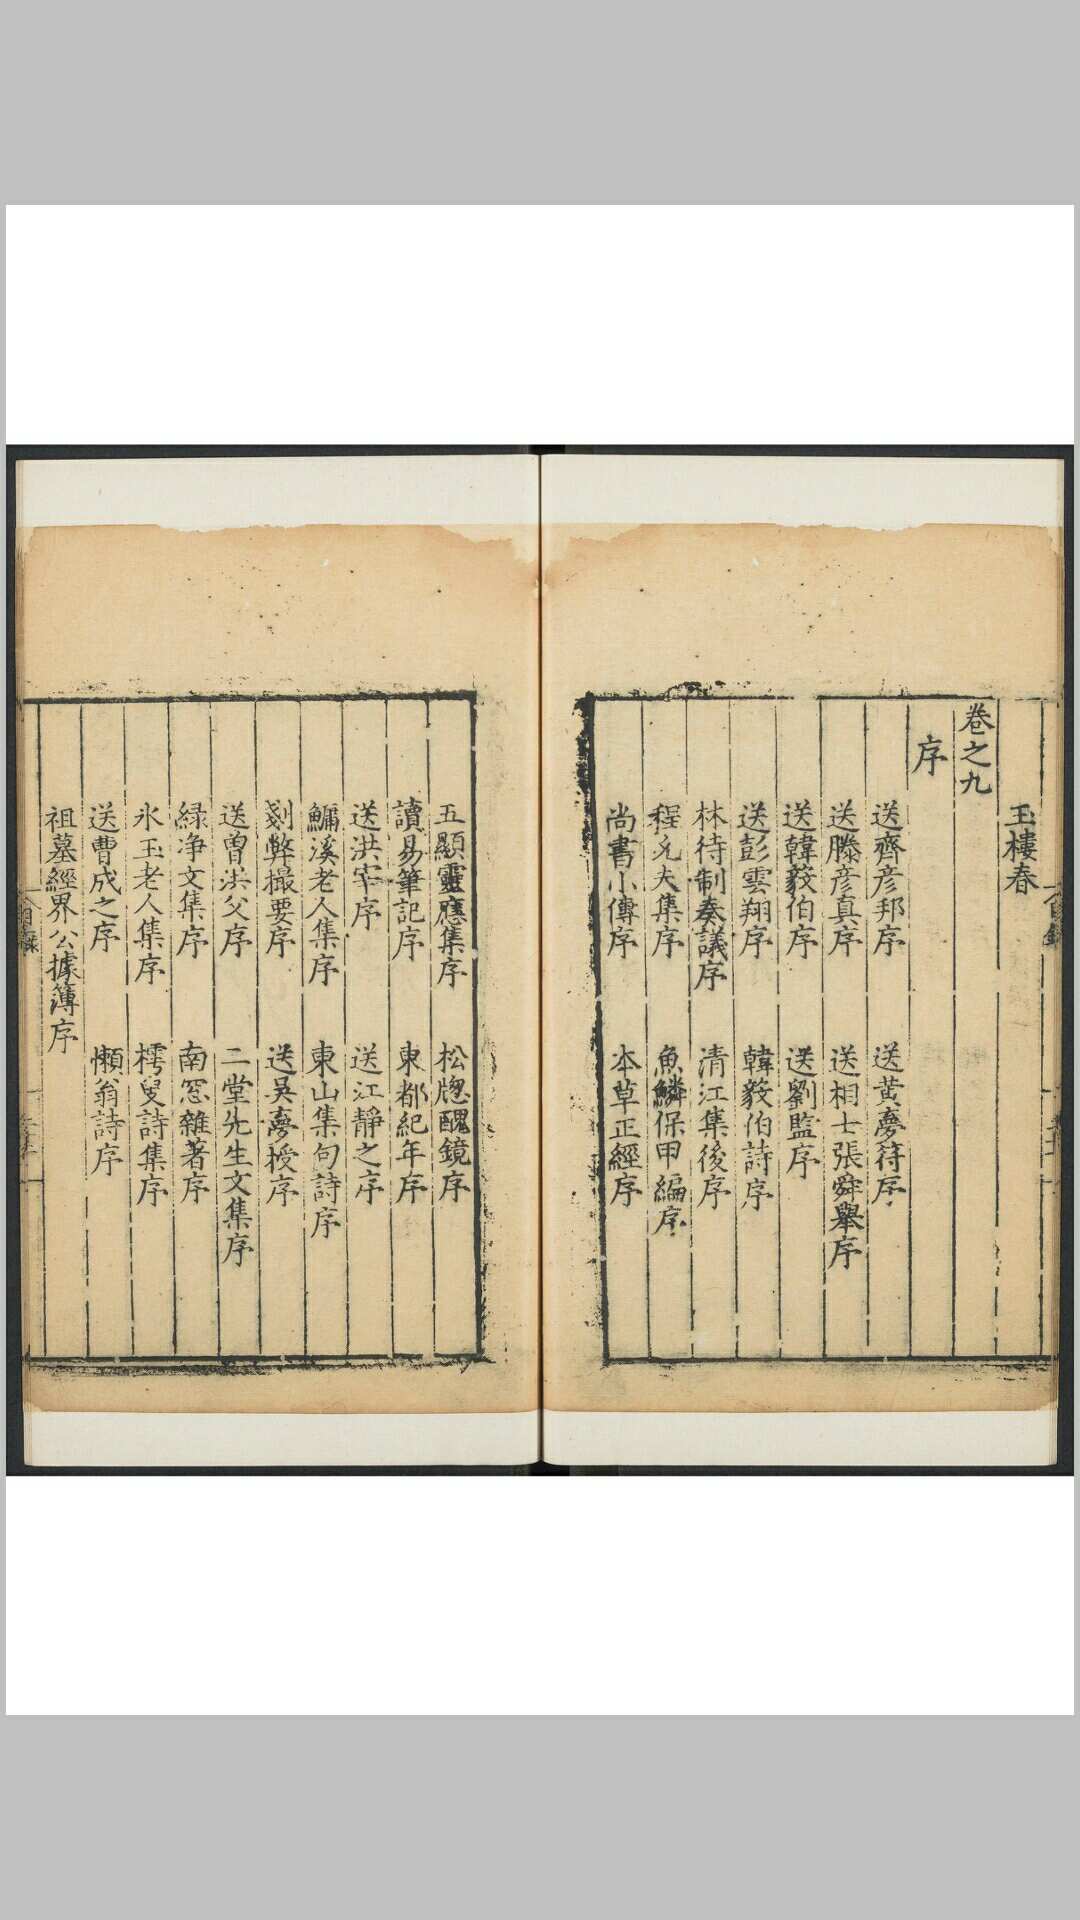 玉樓春
卷之九
序
送齊彦邦序　送黄夢符序
送滕彦真序　送相士張舜舉序
送韓毅伯序　送劉監序
送彭雲翔序　韓毅伯詩序
林待制奏議序　清江集後序
程允夫集序　魚鱗保甲編序
尚書小傳序　本草正經序
五顯靈應集序　松牕醜鏡序
讀易筆記序　東都紀年序
送洪宰序　送江靜之序
鱅溪老人集序　東山集句詩序
剗弊撮要序　送吳夢授序
送曾洪父序　二堂先生文集序
緑净文集序　南窓雜著序
氷玉老人集序　樗叟詩集序
送曹成之序　懶翁詩序
祖墓經界公據簿序